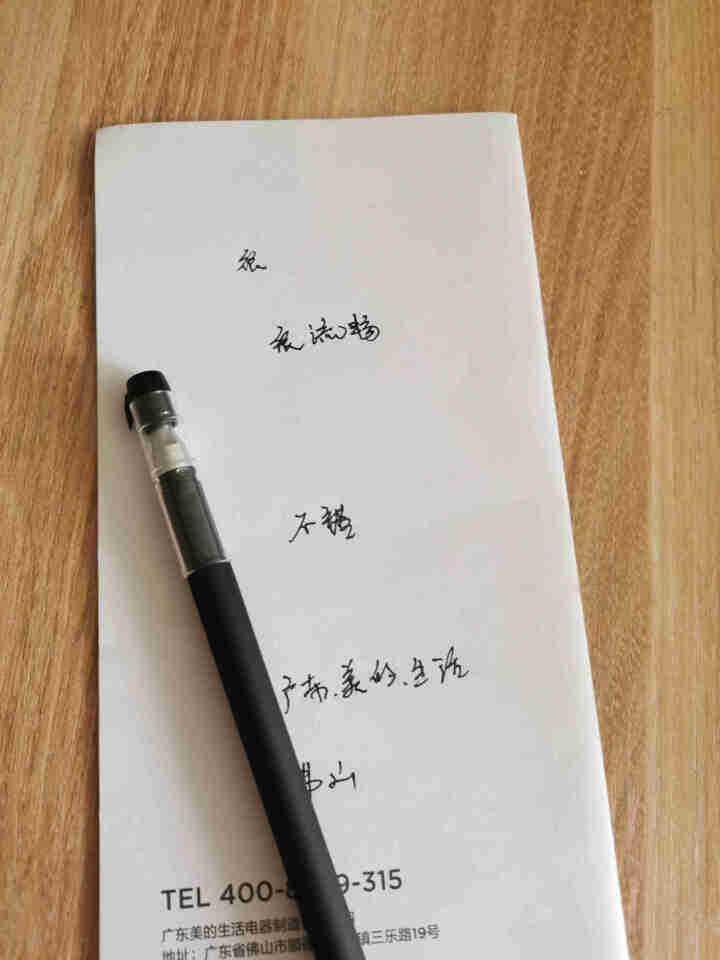 很
很流畅
不错
广东美的生活
TEL 400-8 9-315
广东美的生活电器制造
地址：广东省佛山市顺 镇三乐路19号